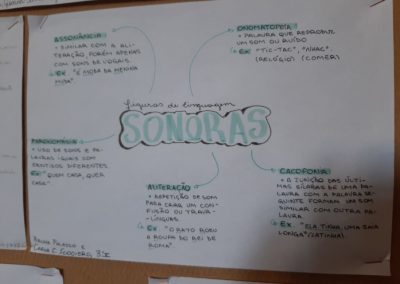 ASSONÂNCIA
• SIMILAR COM A ALI-
TERAÇÃO, PORÉM APENAS
COM SONS DE VOGAIS.
EX: "É MODA DA MENINA
MUDA".
ONOMATOPEIA
• PALAVRA QUE REPRODUZ
UM SOM OU RUÍDO
EX: "TIC-TAC",
(RELÓGIO) (COMER)
figuras de linguagem
SONORAS
PARONOMÁSIA
• USO DE SONS E PA-
LAVRAS IGUAIS COM
SENTIDOS DIFERENTES.
EX: "QUEM CASA, QUER
CASA".
ALITERAÇÃO
• REPETIÇÃO DE SOM
PARA CRIAR UM CON-
FUSÃO OU TRAVA-
LÍNGUAS.
EX: "O RATO ROEU
A ROUPA DO REI DE
ROMA"
CACOFONIA
• A JUNÇÃO DAS ÚLTI-
MAS SÍLABAS DE UMA PALA-
VRA COM A PALAVRA SE-
GUINTE FORMAM UM SOM
SIMILAR COM OUTRA PA-
LAVRA.
EX: "ELA TINHA UMA SAIA
LONGA" (LATINHA).